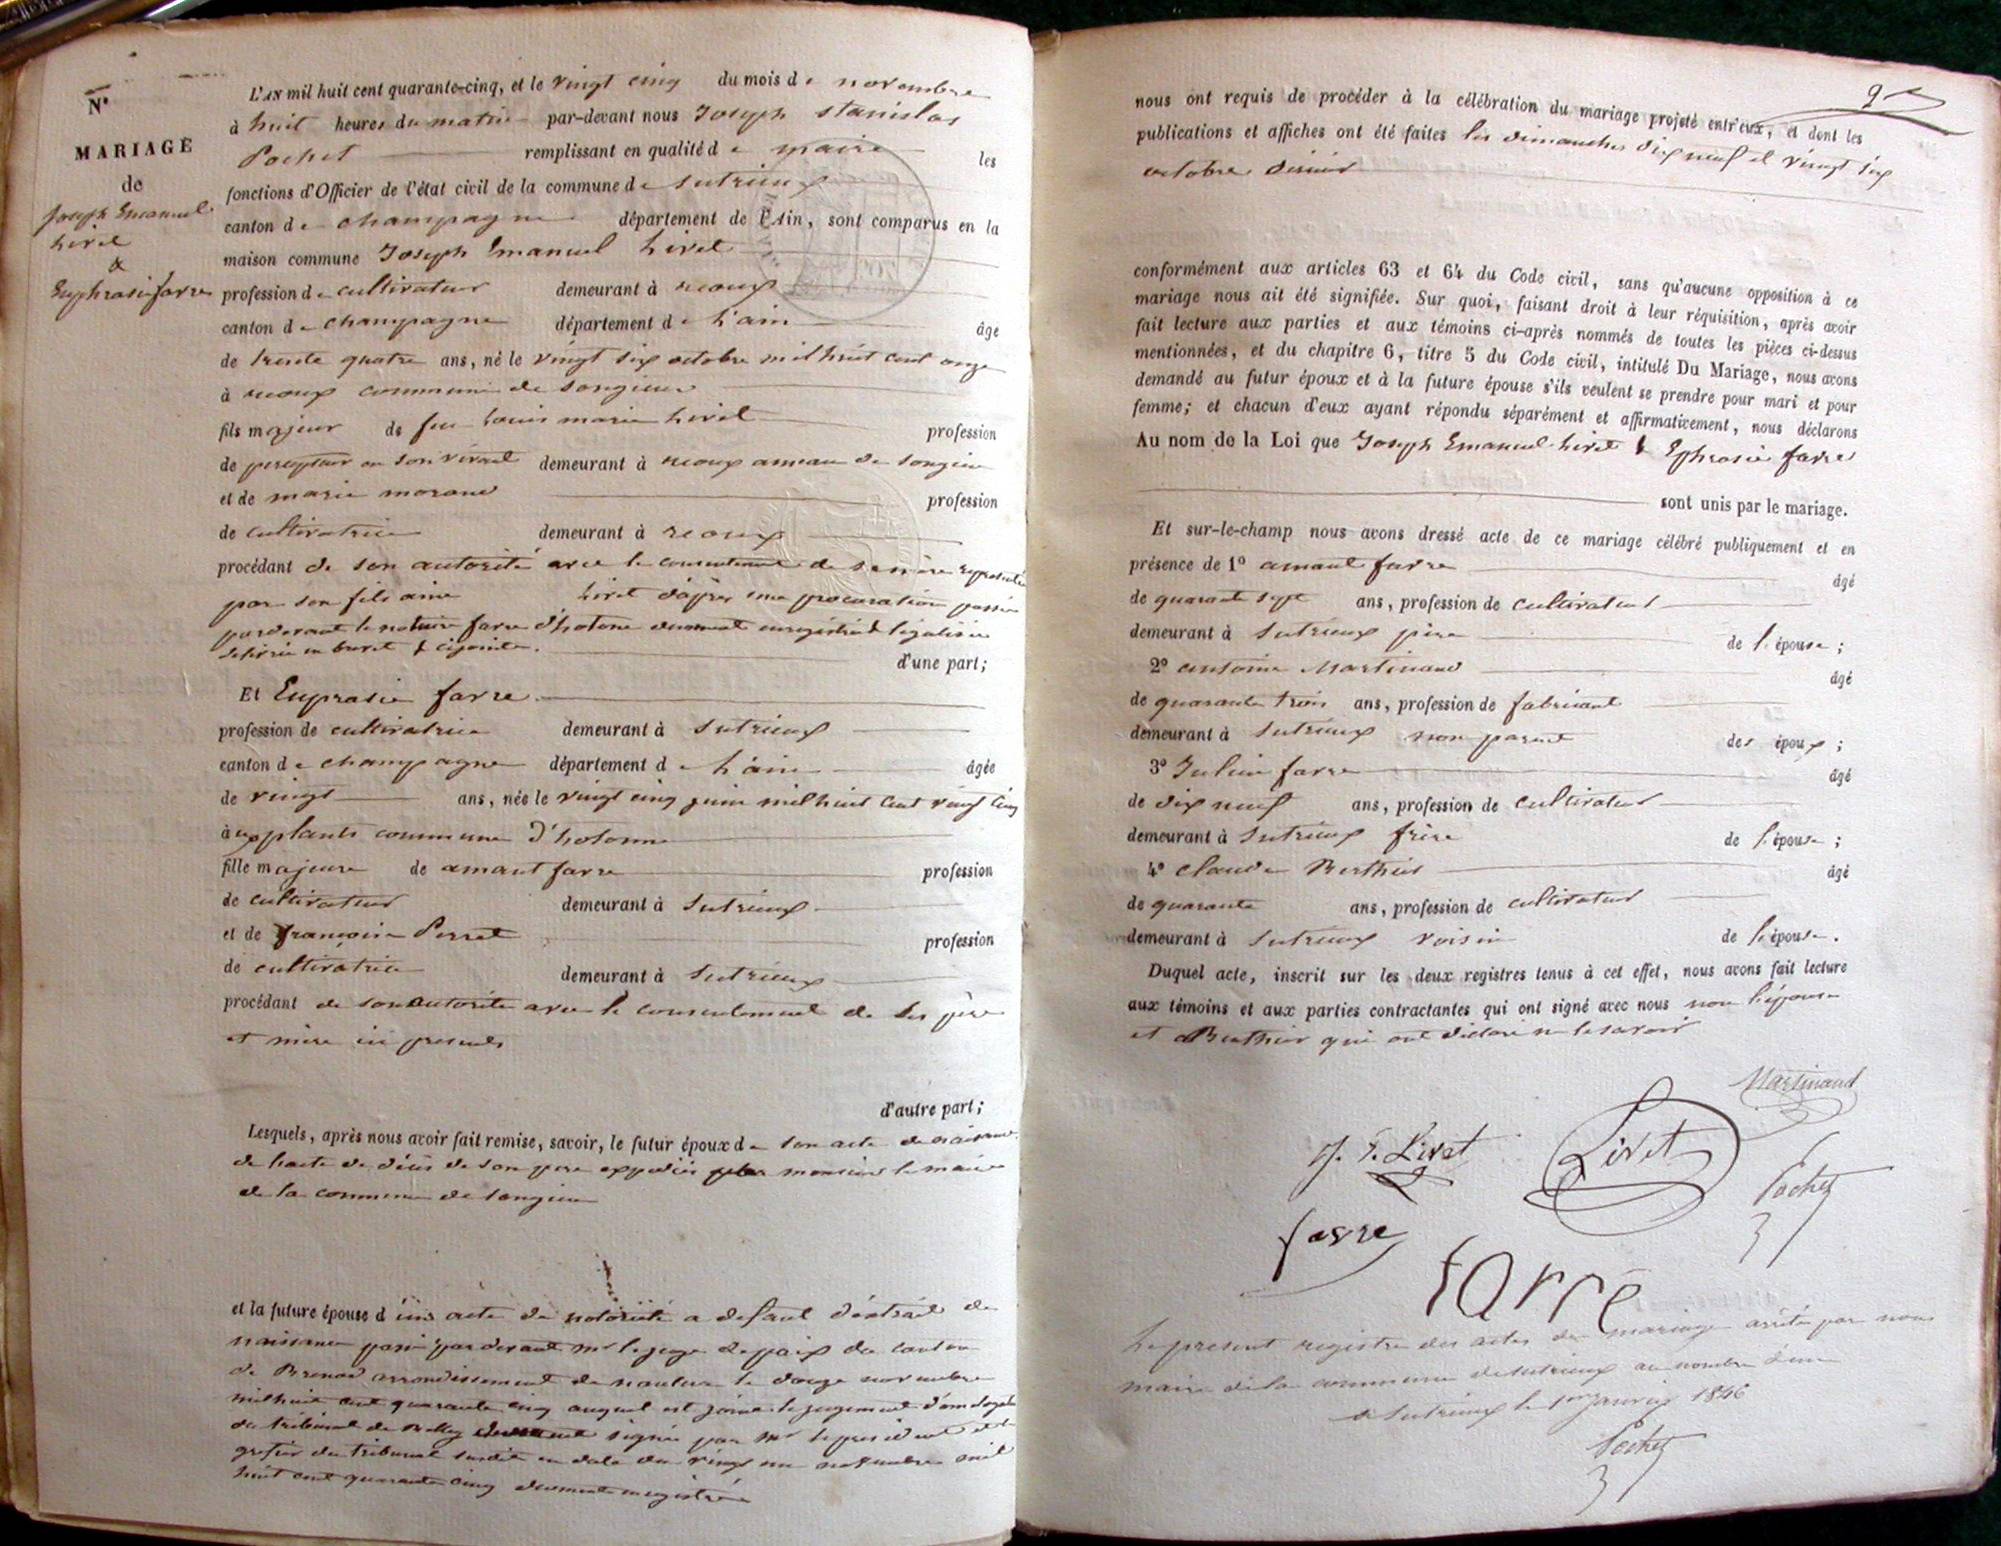 N°
MARIAGE
de
Joseph Emanuel
Livet
&
Euphrasie favre
L'AN mil huit cent quarante-cinq, et le vingt cinq du mois de novembre
à huit heures du matin par-devant nous Joseph Stanislas
Pochet remplissant en qualité de maire les
fonctions d'Officier de l'état civil de la commune de Sutrieux
canton de champagne département de l'Ain, sont comparus en la
maison commune Joseph Emanuel Livet
profession de cultivateur demeurant à reoux
canton de champagne département de l'ain âgé
de trente quatre ans, né le vingt six octobre mil huit cent onze
à reoux commune de songieu
fils majeur de feu Louis marie Livet profession
de percepteur en son vivant demeurant à reoux ameau de songieu
et de marie morand profession
de cultivatrice demeurant à reoux
procédant de son autorité avec le consentement de sa mère representée
par son fils ainé Livet d'après une procuration passée
pardevant le notaire favre d'hotone dument enregistrée & légalisée
delivrée en brevet & cijointe. d'une part;
Et Euprasie favre
profession de cultivatrice demeurant à Sutrieux
canton de champagne département de l'ain âgée
de vingt ans, née le vingt cinq juin mil huit cent vingt cinq
à plants commune d'hotonne
fille majeure de amant favre profession
de cultivateur demeurant à Sutrieux
et de françoise Perret profession
de cultivatrice demeurant à Sutrieux
procédant de son autorité avec le consentement de ses père
et mère ici presents
d'autre part;
Lesquels, après nous avoir fait remise, savoir, le futur époux de son acte de naissance
de l'acte de décès de son pere expediés par monsieur le maire
de la commune de songieu
et la future épouse d'un acte de notoriété a defaut d'extrait de
naissance passé pardevant mr le juge de paix du canton
de Brenod arrondissement de nantua le douze novembre
mil huit cent quarante cinq auquel est joint le jugement d'omologation
du tribunal de Belley signée par mr le president et le
grefier du tribunal susdit en date du vingt un novembre mil
huit cent quarante cinq dument enregistrée
9
nous ont requis de procéder à la célébration du mariage projeté entr'eux, et dont les
publications et affiches ont été faites les dimanches dix neuf et vingt six
octobre dernier
conformément aux articles 63 et 64 du Code civil, sans qu'aucune opposition à ce
mariage nous ait été signifiée. Sur quoi, faisant droit à leur réquisition, après avoir
fait lecture aux parties et aux témoins ci-après nommés de toutes les pièces ci-dessus
mentionnées, et du chapitre 6, titre 5 du Code civil, intitulé Du Mariage, nous avons
demandé au futur époux et à la future épouse s'ils veulent se prendre pour mari et pour
femme; et chacun d'eux ayant répondu séparément et affirmativement, nous déclarons
Au nom de la Loi que Joseph Emanuel Livet & Ephrasie favre
sont unis par le mariage.
Et sur-le-champ nous avons dressé acte de ce mariage célébré publiquement et en
présence de 1° amant favre âgé
de quarante sept ans, profession de cultivateur
demeurant à Sutrieux père de l'épouse;
2° antoine Martinand âgé
de quarante trois ans, profession de fabricant
demeurant à Sutrieux non parent des époux;
3° Julien favre âgé
de dix neuf ans, profession de cultivateur
demeurant à Sutrieux frère de l'épouse;
4° claude Berthier âgé
de quarante ans, profession de cultivateur
demeurant à Sutrieux voisin de l'épouse.
Duquel acte, inscrit sur les deux registres tenus à cet effet, nous avons fait lecture
aux témoins et aux parties contractantes qui ont signé avec nous non l'épouse
et Berthier qui ont declaré ne le savoir
Martinand
Livet
Livet
Pochet
favre
favre
Le present registre des actes de mariage arrêté par nous
maire de la commune de Sutrieux au nombre d'un
a Sutrieux le 1er Janvier 1846
Pochet